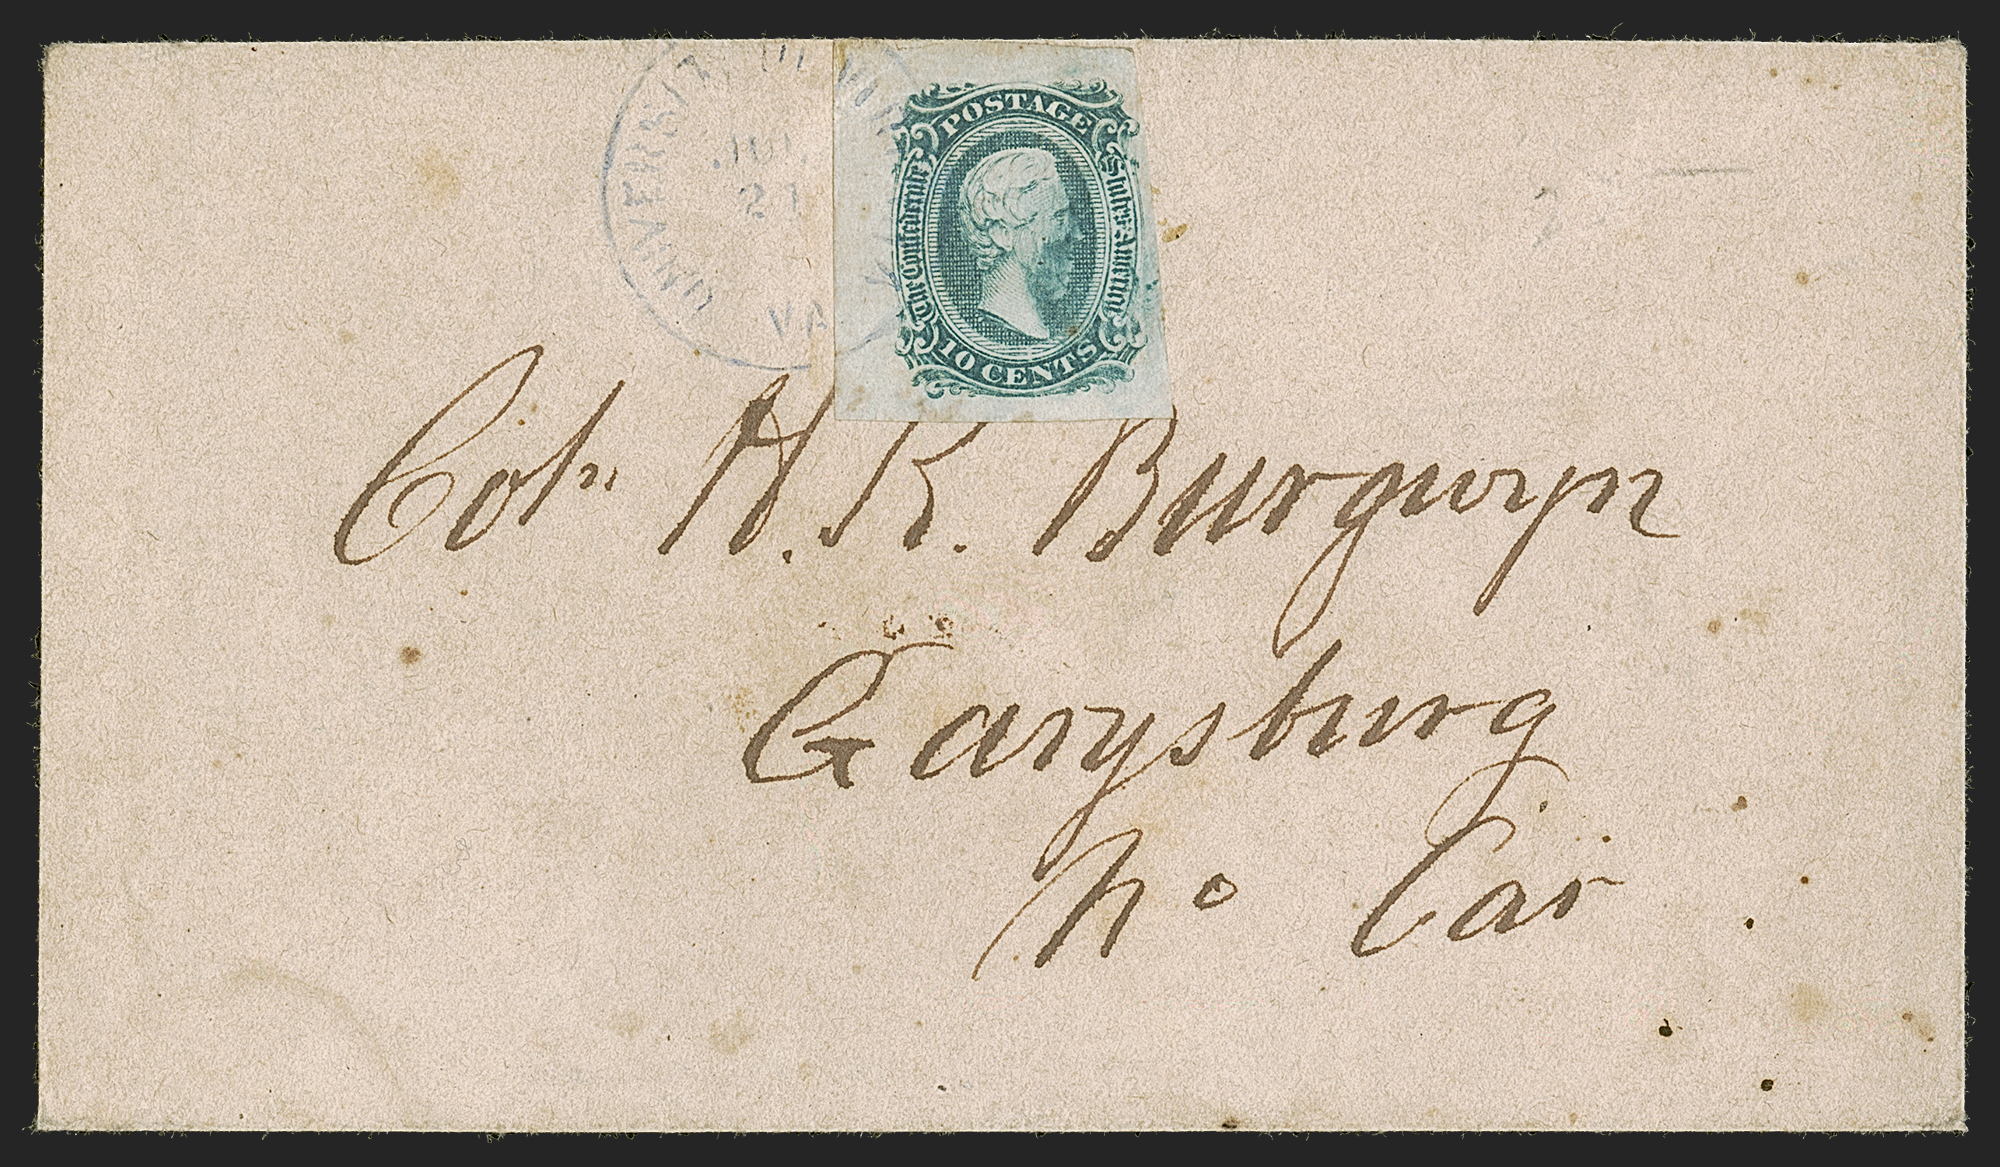 UNIVERSITY OF
JUL
21
VA
POSTAGE
The Confederate States of America
10 CENTS
Col. H. K. Burgwyn
Garysburg
No Car